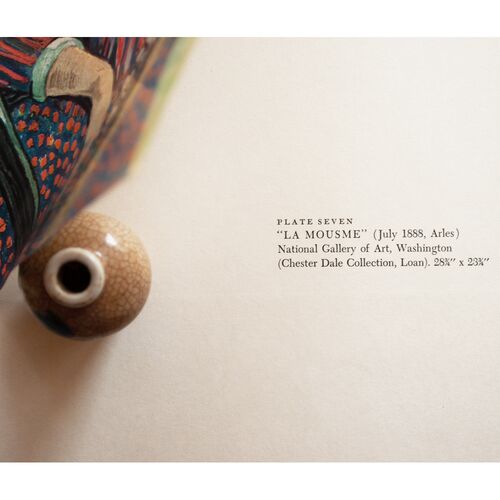 PLATE SEVEN
"LA MOUSME" (July 1888, Arles)
National Gallery of Art, Washington
(Chester Dale Collection, Loan). 28¾" x 23¾"